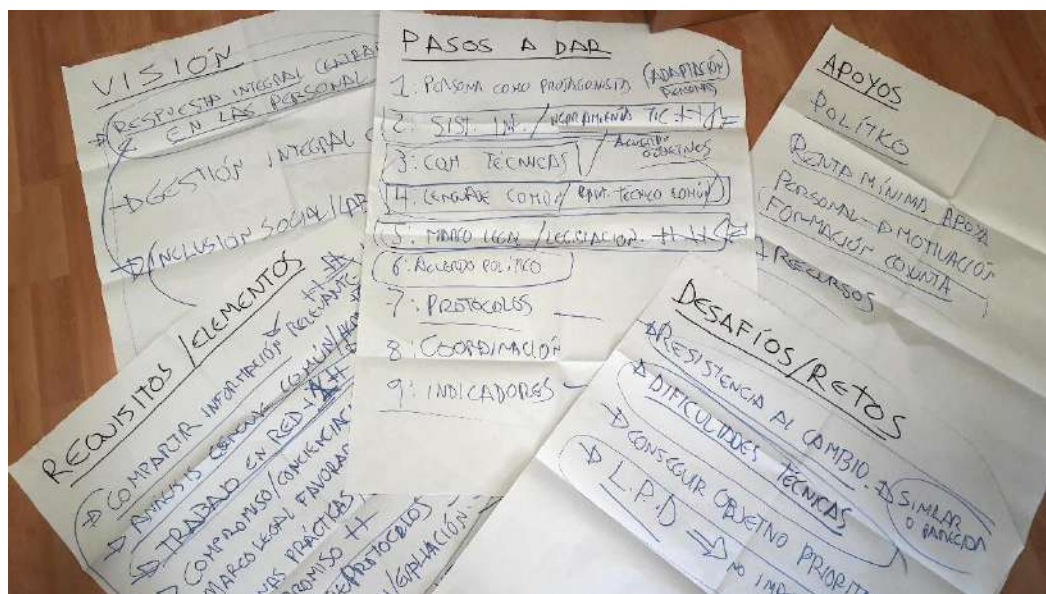 VISIÓN
RESPUESTA INTEGRAL CENTRA
EN LAS PERSONAL
GESTIÓN INTEGRAL
INCLUSIÓN SOCIAL/
PASOS A DAR
1. PERSONA COMO PROTAGONISTA (ADAPTACIÓN)
2. SIST. IN. / TIC ++
3. COM TÉCNICAS / ACUERDO OBJETIVOS
4. LENGUAJE COMÚN / TÉCNICO COMÚN
5. MARCO LEGAL / LEGISLACIÓN. ++
6. ACUERDO POLÍTICO
7. PROTOCOLOS
8. COORDINACIÓN
9. INDICADORES
APOYOS
POLÍTKO
RENTA MÍNIMA APOYA
PERSONAL → MOTIVACIÓN
FORMACIÓN CONJUNTA
RECURSOS
REQUISITOS/ELEMENTOS
COMPARTIR INFORMACIÓN RELEVANTE
ANÁLISIS LENGUAJE COMÚN/
TRABAJO EN RED
COMPROMISO/CONCIENCIAC
MARCO LEGAL FAVORAB
NAS PRÁCTICAS
PROMISO
PROTOCOLOS
DESAFÍOS/RETOS
RESISTENCIA AL CAMBIO.
DIFICULTADES TÉCNICAS → SIMILAR O PARECIDA
CONSEGUIR OBJETIVO PRIORIT
L.P.D → NO